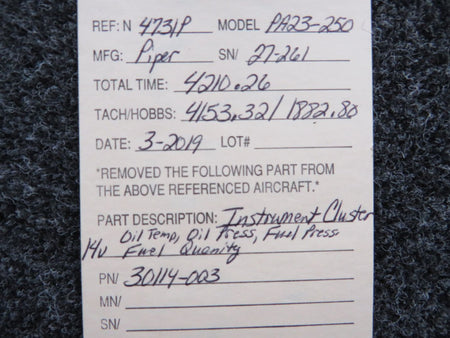 REF: N 4731P MODEL PA23-250
MFG: Piper SN/ 27-261
TOTAL TIME: 4210.26
TACH/HOBBS: 4153.32 / 1882.80
DATE: 3-2019 LOT#
*REMOVED THE FOLLOWING PART FROM
THE ABOVE REFERENCED AIRCRAFT.*
PART DESCRIPTION: Instrument Cluster
Oil Temp, Oil Press, Fuel Press
14v Fuel Quanity
PN/ 30114-003
MN/
SN/